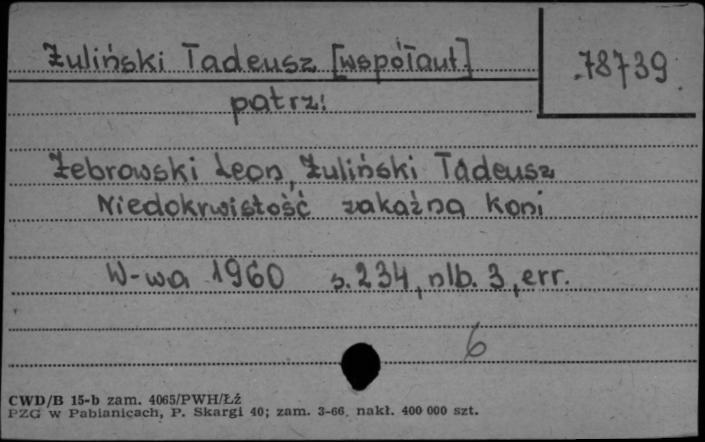 Żuliński Tadeusz [współaut.]
78739
patrz:
Żebrowski Leon, Żuliński Tadeusz
Niedokrwistość zakaźna koni
W-wa 1960 s. 234, nlb. 3, err.
6
CWD/B 15-b zam. 4065/PWH/Łź
PZG w Pabianicach, P. Skargi 40; zam. 3-66, nakł. 400 000 szt.